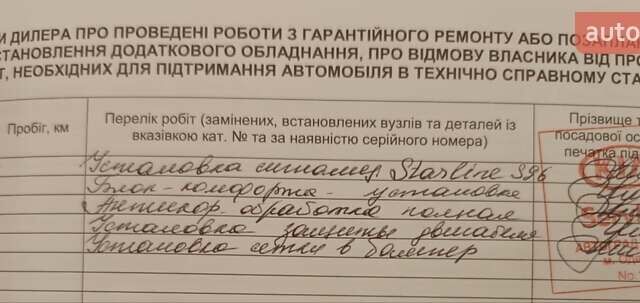 И ДИЛЕРА ПРО ПРОВЕДЕНІ РОБОТИ З ГАРАНТІЙНОГО РЕМОНТУ АБО ПОЗАПЛАН
СТАНОВЛЕННЯ ДОДАТКОВОГО ОБЛАДНАННЯ, ПРО ВІДМОВУ ВЛАСНИКА ВІД ПРО
Т, НЕОБХІДНИХ ДЛЯ ПІДТРИМАННЯ АВТОМОБІЛЯ В ТЕХНІЧНО СПРАВНОМУ СТА
auto
Пробіг, км
Перелік робіт (замінених, встановлених вузлів та деталей із
вказівкою кат. № та за наявністю серійного номера)
Прізвище т
посадової ос
печатка під
Установка сигнализ Starline S96
Блок-комфорта - установка
Антикор. обработка полная
Установка защиты двигателя
Установка сетки в бампер